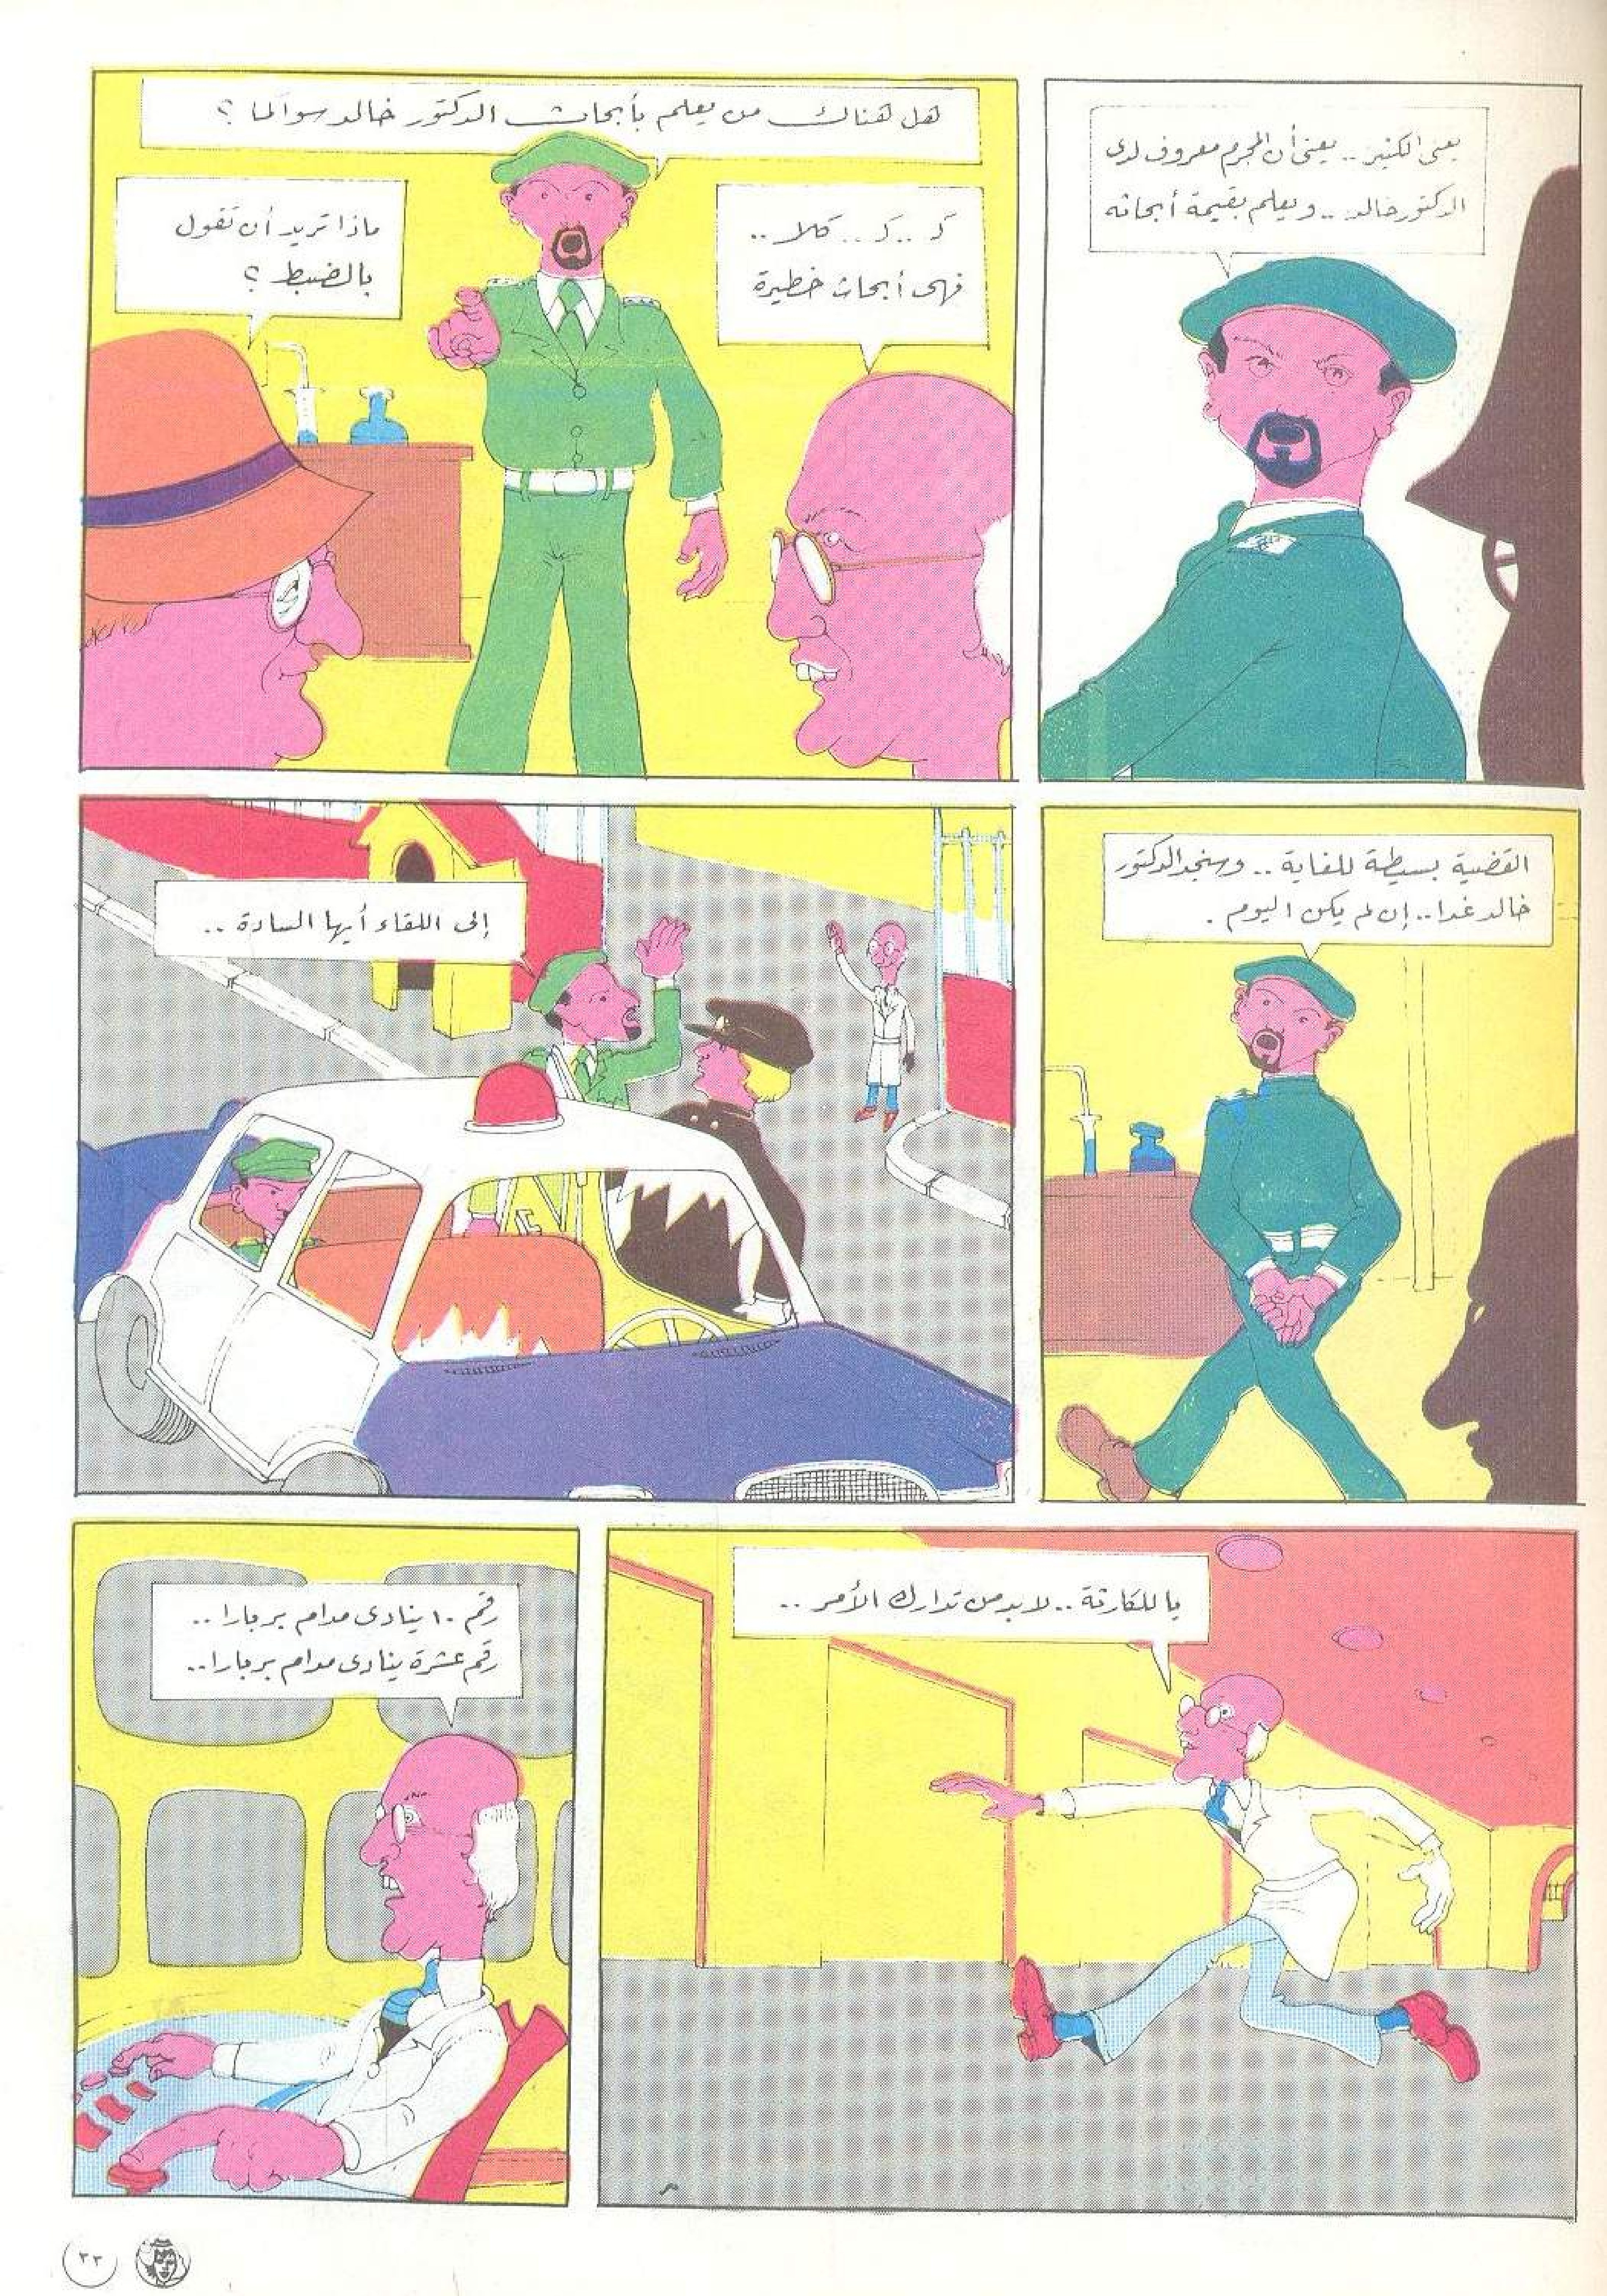 يعنى الكثير .. يعنى أن المجرم معروف لدى
الدكتور خالد .. ويعلم بقيمة أبحاثه
هل هناك من يعلم بأبحاث الدكتور خالد سواكما ؟
كـ .. كـ .. كلا ..
فهى أبحاث خطيرة
ماذا تريد أن تقول
بالضبط ؟
القضية بسيطة للغاية .. وسنجد الدكتور
خالد غدا .. إن لم يكن اليوم .
إلى اللقاء أيها السادة ..
يا للكارثة .. لا بد من تدارك الأمر ..
رقم ١٠ ينادى مدام بربارا ..
رقم عشرة ينادى مدام بربارا ..
٣٣